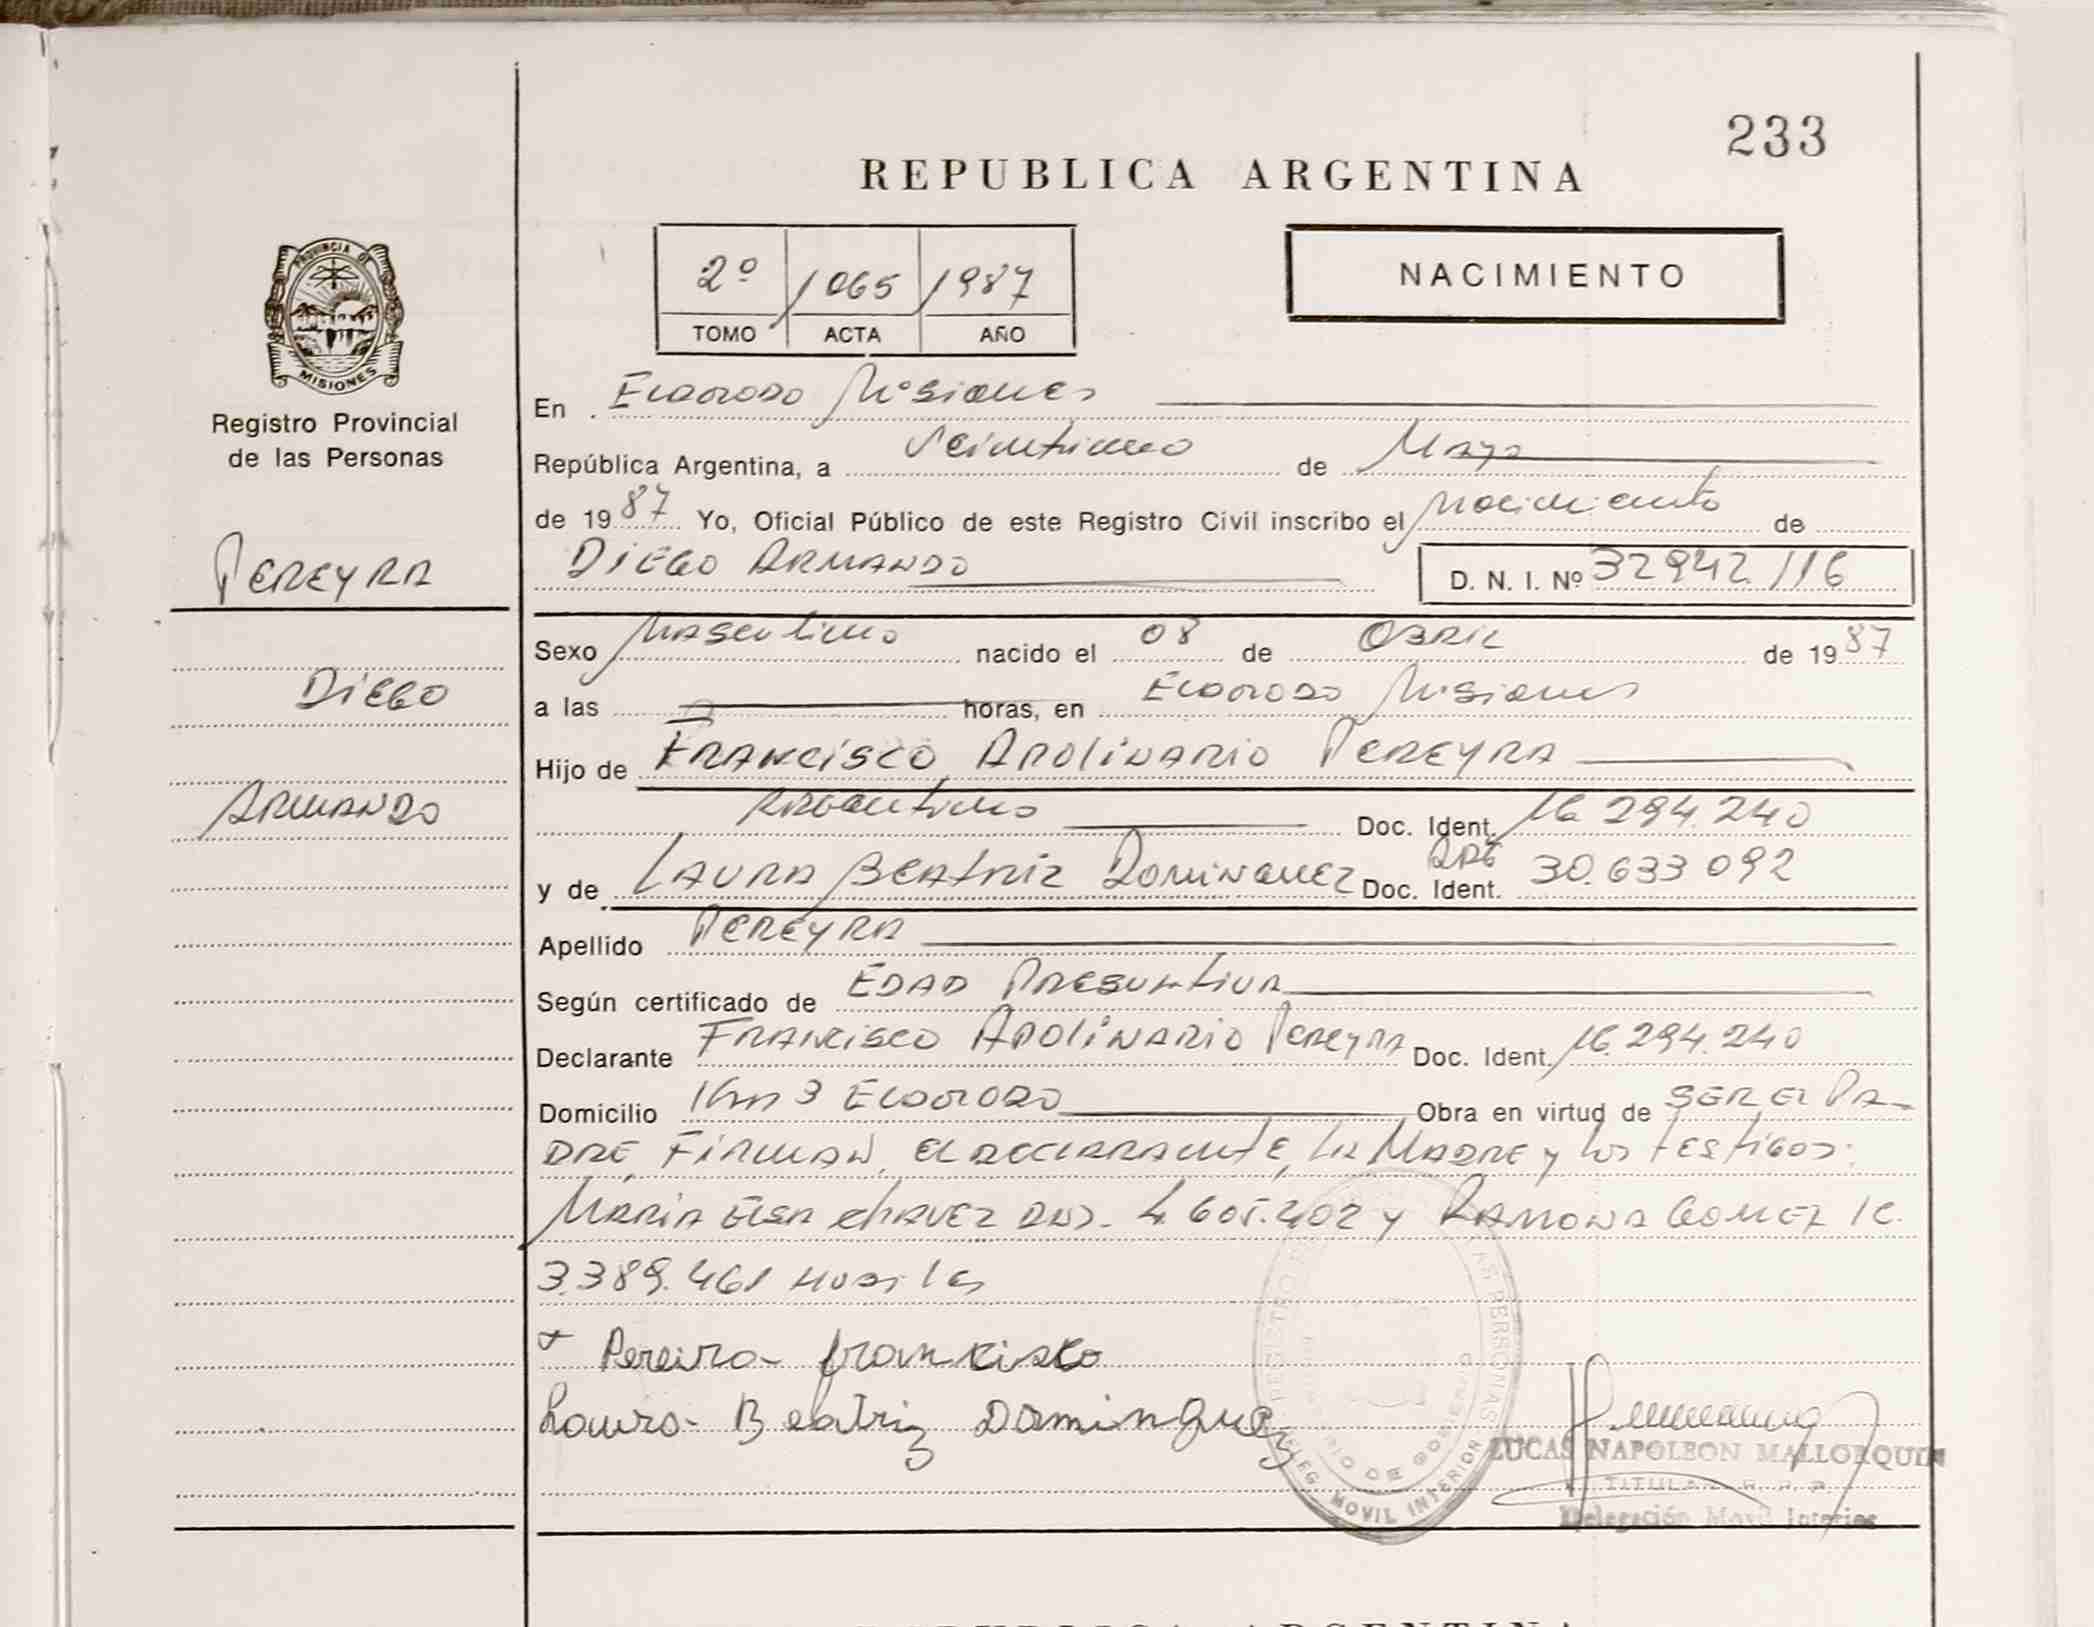 233
REPUBLICA ARGENTINA
2º 1065 1987
TOMO ACTA AÑO
NACIMIENTO
PROVINCIA DE
MISIONES
Registro Provincial
de las Personas
En Eldorado Misiones
República Argentina, a Veintiuno de Mayo
de 1987 Yo, Oficial Público de este Registro Civil inscribo el Nacimiento de
PEREYRA
DIEGO ARMANDO D. N. I. Nº 32942.116
Sexo Masculino nacido el 08 de Abril de 1987
DIEGO
a las horas, en Eldorado Misiones
Hijo de FRANCISCO APOLINARIO PEREYRA
ARMANDO
Argentino Doc. Ident. 16.294.240
y de LAURA BEATRIZ DOMINGUEZ Doc. Ident. 30.633.092
Apellido PEREYRA
Según certificado de EDAD PRESUNTIVA
Declarante FRANCISCO APOLINARIO PEREYRA Doc. Ident. 16.294.240
Domicilio Km 3 ELDORADO Obra en virtud de SER EL PA-
DRE, FIRMAN, el DECLARANTE, LA MADRE y los testigos:
MARIA ELSA CHAVEZ 4.605.402 y RAMONA GOMEZ
3.389.461
Pereira francisco
Laura Beatriz Dominguez
REGISTRO LAS PERSONAS
DELEG. MOVIL INTERIOR
LUCAS NAPOLEON MALLORQUIN
TITULAR
Delegación Movil Interior
REPUBLICA ARGENTINA